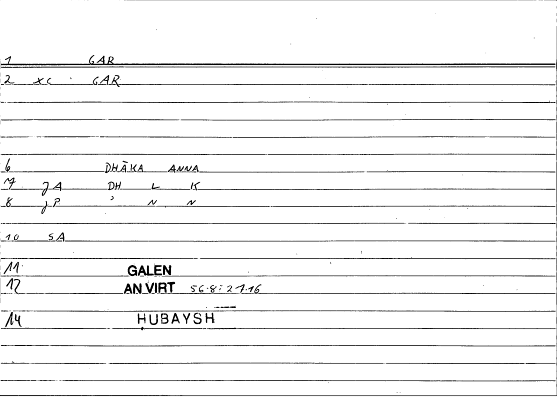 1 GAR
2 XC · GAR
6 DHĀKA ANNA
7 JA DH L K
8 JP " N N
10 SA
11 GALEN
12 AN VIRT 56.8:27.16
14 ḤUBAYSH